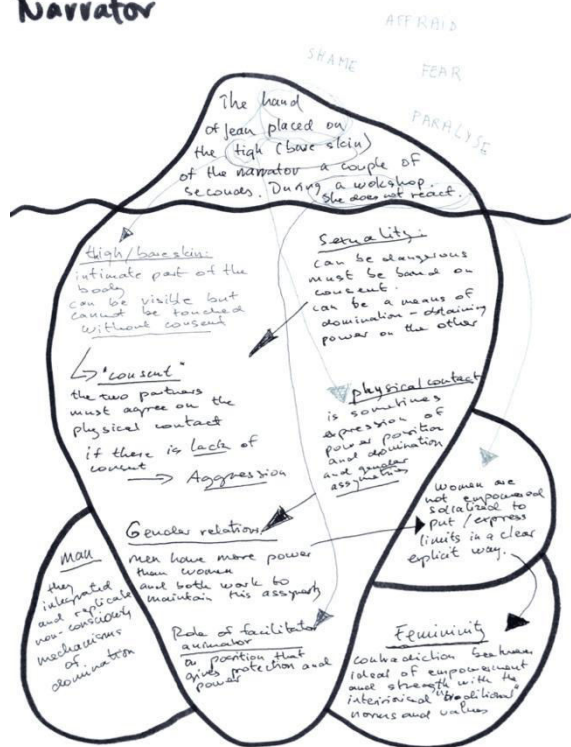 Narrator
AFFRAID
SHAME
FEAR
PARALYSE
The hand
of Jean placed on
the tigh (bare skin)
of the narrator a couple of
seconds. During a wokshop.
She does not react.
thigh/bare skin:
intimate part of the
body
can be visible but
cannot be touched
without consent
"consent"
the two partners
must agree on the
physical contact
if there is lack of
consent
Aggression
Sexuality:
can be dangerous
must be based on
consent.
can be a means of
domination - obtaining
power on the other
physical contact
is sometimes
expression of
power position
and domination
and gender
assymetries
Gender relations
men have more power
than women
and both work to
maintain this
Role of facilitator
animator
a position that
gives protection and
power
man
they
integrated
and replicate
non-consciously
mechanisms
of
domination
Women are
not empowered
socialized to
put / express
limits in a clear
explicit way.
Femininity
contradiction between
ideal of empowerment
and strength with the
"traditional"
norms and values